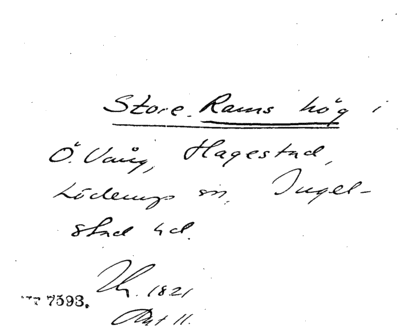 Store Rams hög i
Ö. Vång, Hagestad,
Löderups sn, Ingel-
stad hd.
1821
7593.